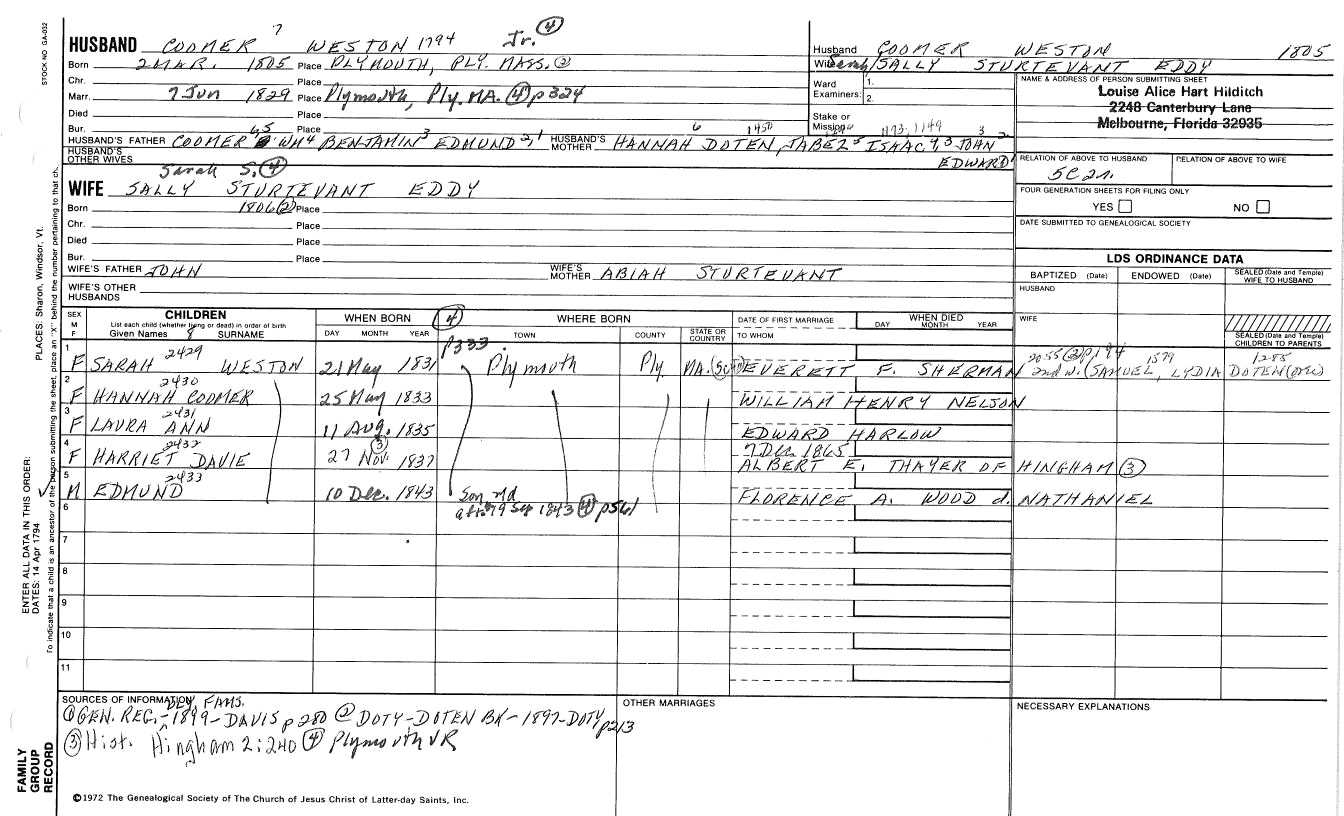 STOCK NO GA-032
7
HUSBAND COOMER WESTON 1794 Jr. (4)
Born 2 MAR. 1805 Place PLYMOUTH, PLY. MASS. (2)
Chr. Place
Marr. 7 Jun 1829 Place Plymouth, Ply. MA. (4) p324
Died Place
Bur. Place
HUSBAND'S FATHER COOMER 6,5 WM 4 BENJAMIN 3 EDMUND 2,1 HUSBAND'S MOTHER HANNAH DOTEN, JABEZ 5 ISAAC 4,3 JOHN 2
HUSBAND'S OTHER WIVES EDWARD 1
Husband COOMER WESTON 1805
Wife Sarah/SALLY STURTEVANT EDDY
Ward Examiners: 1. 2.
Stake or Mission
NAME & ADDRESS OF PERSON SUBMITTING SHEET
Louise Alice Hart Hilditch
2248 Canterbury Lane
Melbourne, Florida 32935
RELATION OF ABOVE TO HUSBAND RELATION OF ABOVE TO WIFE
5C2r.
FOUR GENERATION SHEETS FOR FILING ONLY
YES NO
DATE SUBMITTED TO GENEALOGICAL SOCIETY
Sarah S. (4)
WIFE SALLY STURTEVANT EDDY
Born 1806 (2) Place
Chr. Place
Died Place
Bur. Place
WIFE'S FATHER JOHN WIFE'S MOTHER ABIAH STURTEVANT
WIFE'S OTHER HUSBANDS
LDS ORDINANCE DATA
BAPTIZED (Date) ENDOWED (Date) SEALED (Date and Temple) WIFE TO HUSBAND
HUSBAND
WIFE
SEALED (Date and Temple) CHILDREN TO PARENTS
SEX M F CHILDREN WHEN BORN (4) WHERE BORN DATE OF FIRST MARRIAGE WHEN DIED
List each child (whether living or dead) in order of birth
Given Names 8 SURNAME DAY MONTH YEAR TOWN COUNTY STATE OR COUNTRY TO WHOM DAY MONTH YEAR
p333
1 2429
F SARAH WESTON 21 May 1831 Plymouth Ply MA. EVERETT F. SHERMAN 2nd W. (SAMUEL, LYDIA DOTEN
2055 (2) p184 1579 1285
2 2430
F HANNAH COOMER 25 May 1833 WILLIAM HENRY NELSON
3 2431
F LAURA ANN 11 Aug. 1835 EDWARD HARLOW
4 2432
F HARRIET DAVIE 27 Nov. (3) 1837 7 Dec. 1865 ALBERT E. THAYER OF HINGHAM (3)
5 2433
M EDMUND 10 Dec. 1843 Son, md FLORENCE A. WOOD d. NATHANIEL
6 aft. 19 Sep 1843 (4) p561
7
8
9
10
11
SOURCES OF INFORMATION PLY. FAMS.
(1) GEN. REG. - 1899 - DAVIS p 280 (2) DOTY-DOTEN BK - 1897 - DOTY p213
(3) Hist. Hingham 2:240 (4) Plymouth VR
OTHER MARRIAGES
NECESSARY EXPLANATIONS
©1972 The Genealogical Society of The Church of Jesus Christ of Latter-day Saints, Inc.
FAMILY GROUP RECORD
ENTER ALL DATA IN THIS ORDER:
DATES: 14 Apr 1794
PLACES: Sharon, Windsor, Vt.
To indicate that a child is an ancestor of the person submitting the sheet, place an "X" behind the number pertaining to that ch.